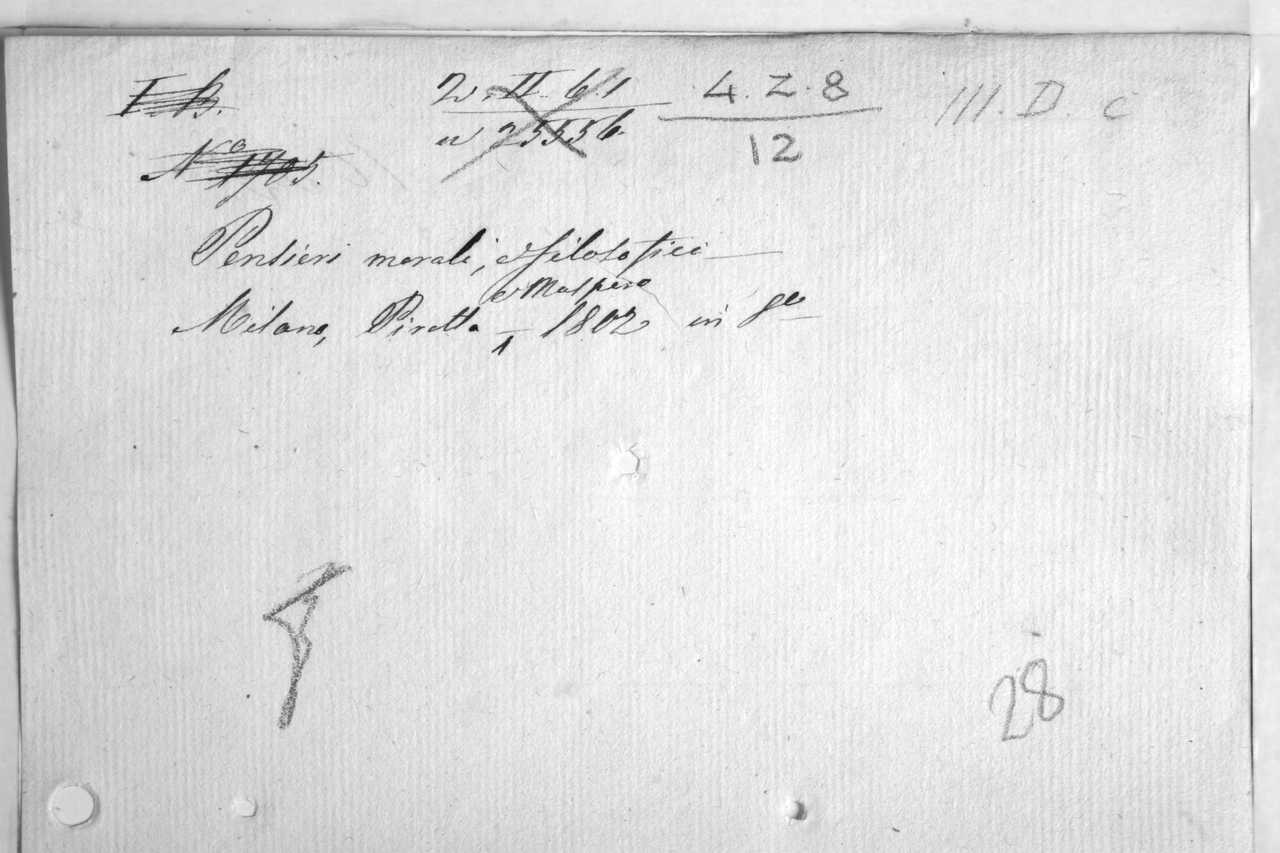 I. B. 2. II. 6.1 4.Z.8 III.D.c
N.o 1705. 25556. 12
Pensieri morali, e filosofici
e Maspero
Milano, Pirotta 1802 in 8o
1
28